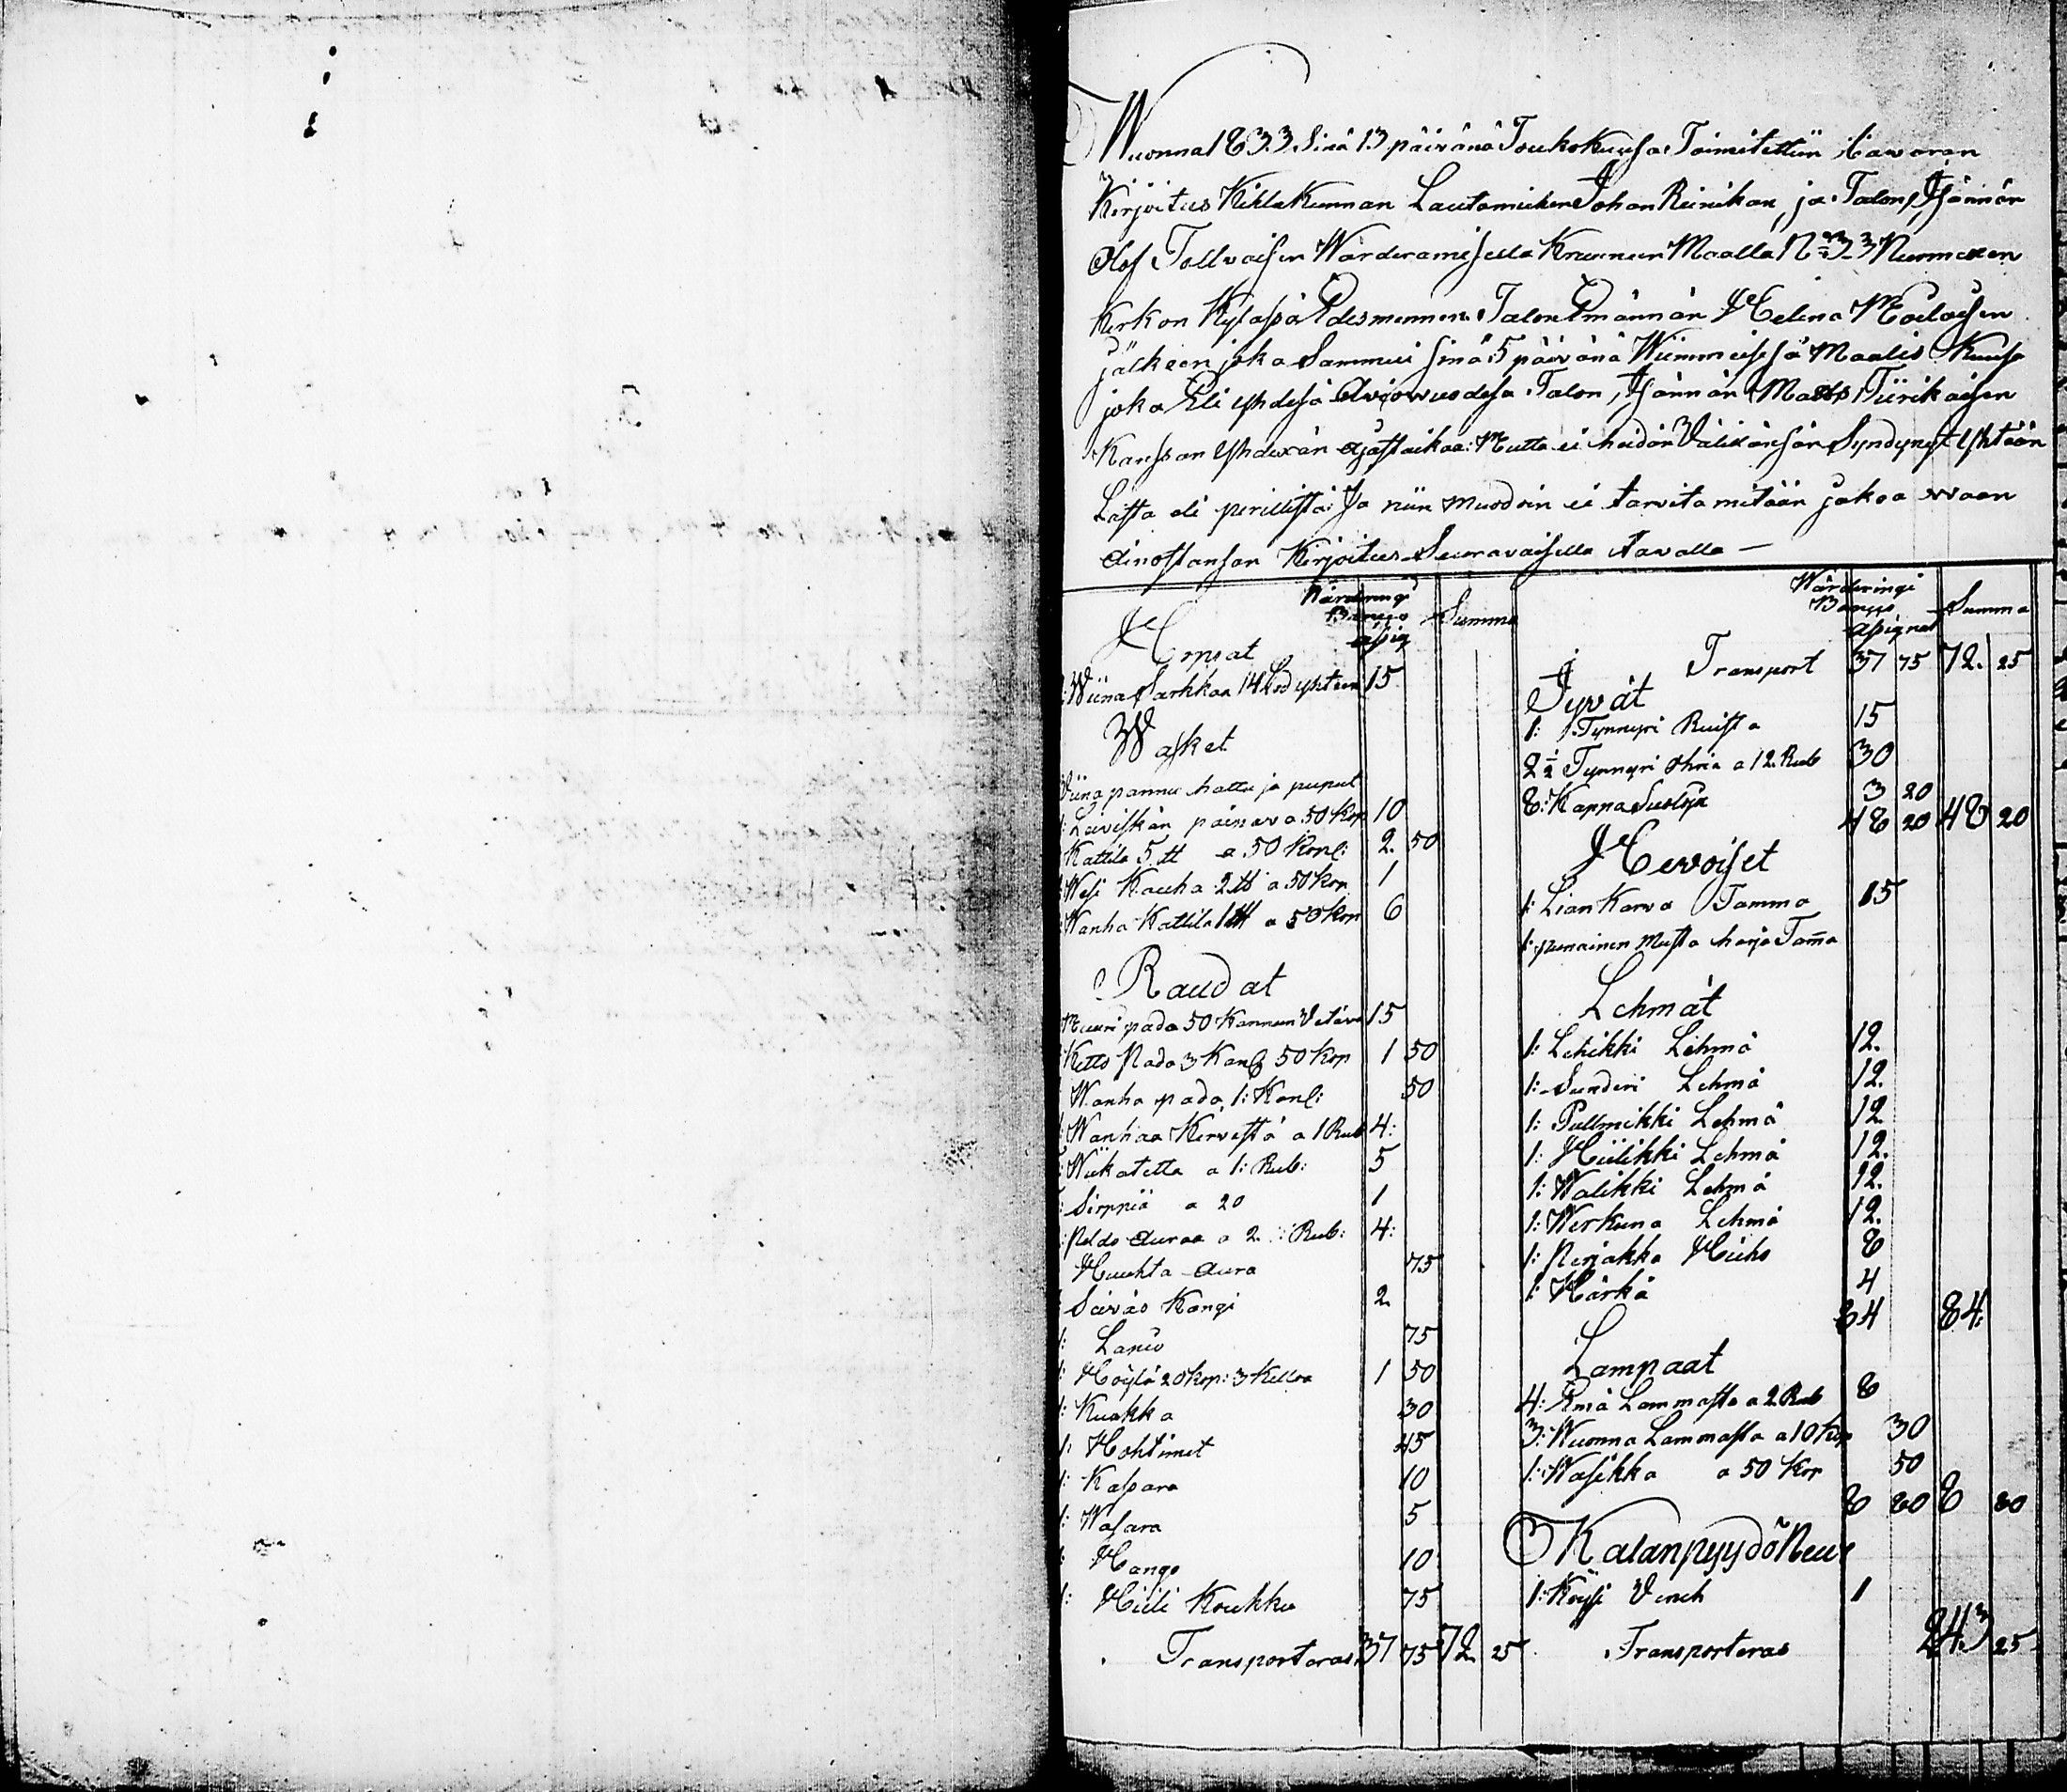 Wuonna 1833 Sinä 13 päivänä Toukokuusa Toimitettiin tavaran
Kirjoitus Kihlakunnan Lautamiehen Johan Reinikan, ja Talon, Isännän
Olof Tollvaisen Wärderamisella Kruunun Maalla No 33 Nurmexen
Kirkon Kylässä Edesmennen Talon Emännän Helena Mailaisen
jälkeen joka Sammui sinä 5 päivänä Wiimmeisesä Maalis Kuusa
joka Eli yhdesä Aviowuodesa Talon, Isännän Matts Tiirikaisen
Kanssan Yhdexän ajastaikaa: Mutta ei heidän Välixänsän Syndynyt yhtään
Lasta eli perillistä: Ja niin muodoin ei tarvita mitään jakoa waan
Ainostansan Kirjoitus Seuravaisella tavalla —
Wärderingi Banco assig Summa
Hopiat
Wiina Sarkka 14 Lod yhteen 15
Wasket
Viina pannu hattu ja piiput
1: Leiviskän painava 50 Kop 10
Kattila 5 ℔ a 50 Kop: 2. 50
Wesi Kauha 2 ℔ a 50 kop 1
Wanha Kattila 1 ℔ a 50 Kop 6
Raudat
Muuri pada 50 Kannun Vetävä 15
Keitto Pada 3 Kan 50 Kop 1 50
Wanha pada 1: Kan: 50
Wanhaa Kirvestä a 1 Rub 4:
Wiikatetta a 1: Rub: 5
Sirppiä a 20 1
Peldo Auraa a 2: Rub: 4:
Huuhta Aura 75
Seiväs Kangi 2.
1: Lapio 75
1: Höylä 20 kop: 3 Kelloa 1 50
1: Kuokka 30
1: Hohtimet 45
1: Kassara 10
1: Wasara 5
1: Hango 10
1: Hiili Koukku 75
Transporteras 37 75 72. 25
Wärderingi Banco assignat Summa
Transport 37 75 72. 25
Jyvät
1: Tynnyri Ruista 15
2½ Tynnyri Ohria a 12 Rub 30
8: Kappa 3 20
48 20 48 20
Hevoiset
1: Lian Karva Tamma 15
1: punainen Musta harja Tam̄a
Lehmät
1: Letikki Lehmä 12.
1: Sunderi Lehmä 12.
1: Pullmikki Lehmä 12
1: Hiilikki Lehmä 12.
1: Walikki Lehmä 12.
1: Werkuna Lehmä 12.
1: Perjakka Hieho 8
1: Härkä 4
84 84:
Lampaat
4: Emä Lammasta a 2 Rub 8
3: Wuonna Lammasta a 10 Kop 30
1: Wasikka a 50 Kop 50
8 80 8 80
Kalanpyydö Neu
1: Köysi Veneh 1
Transporteras 243 25